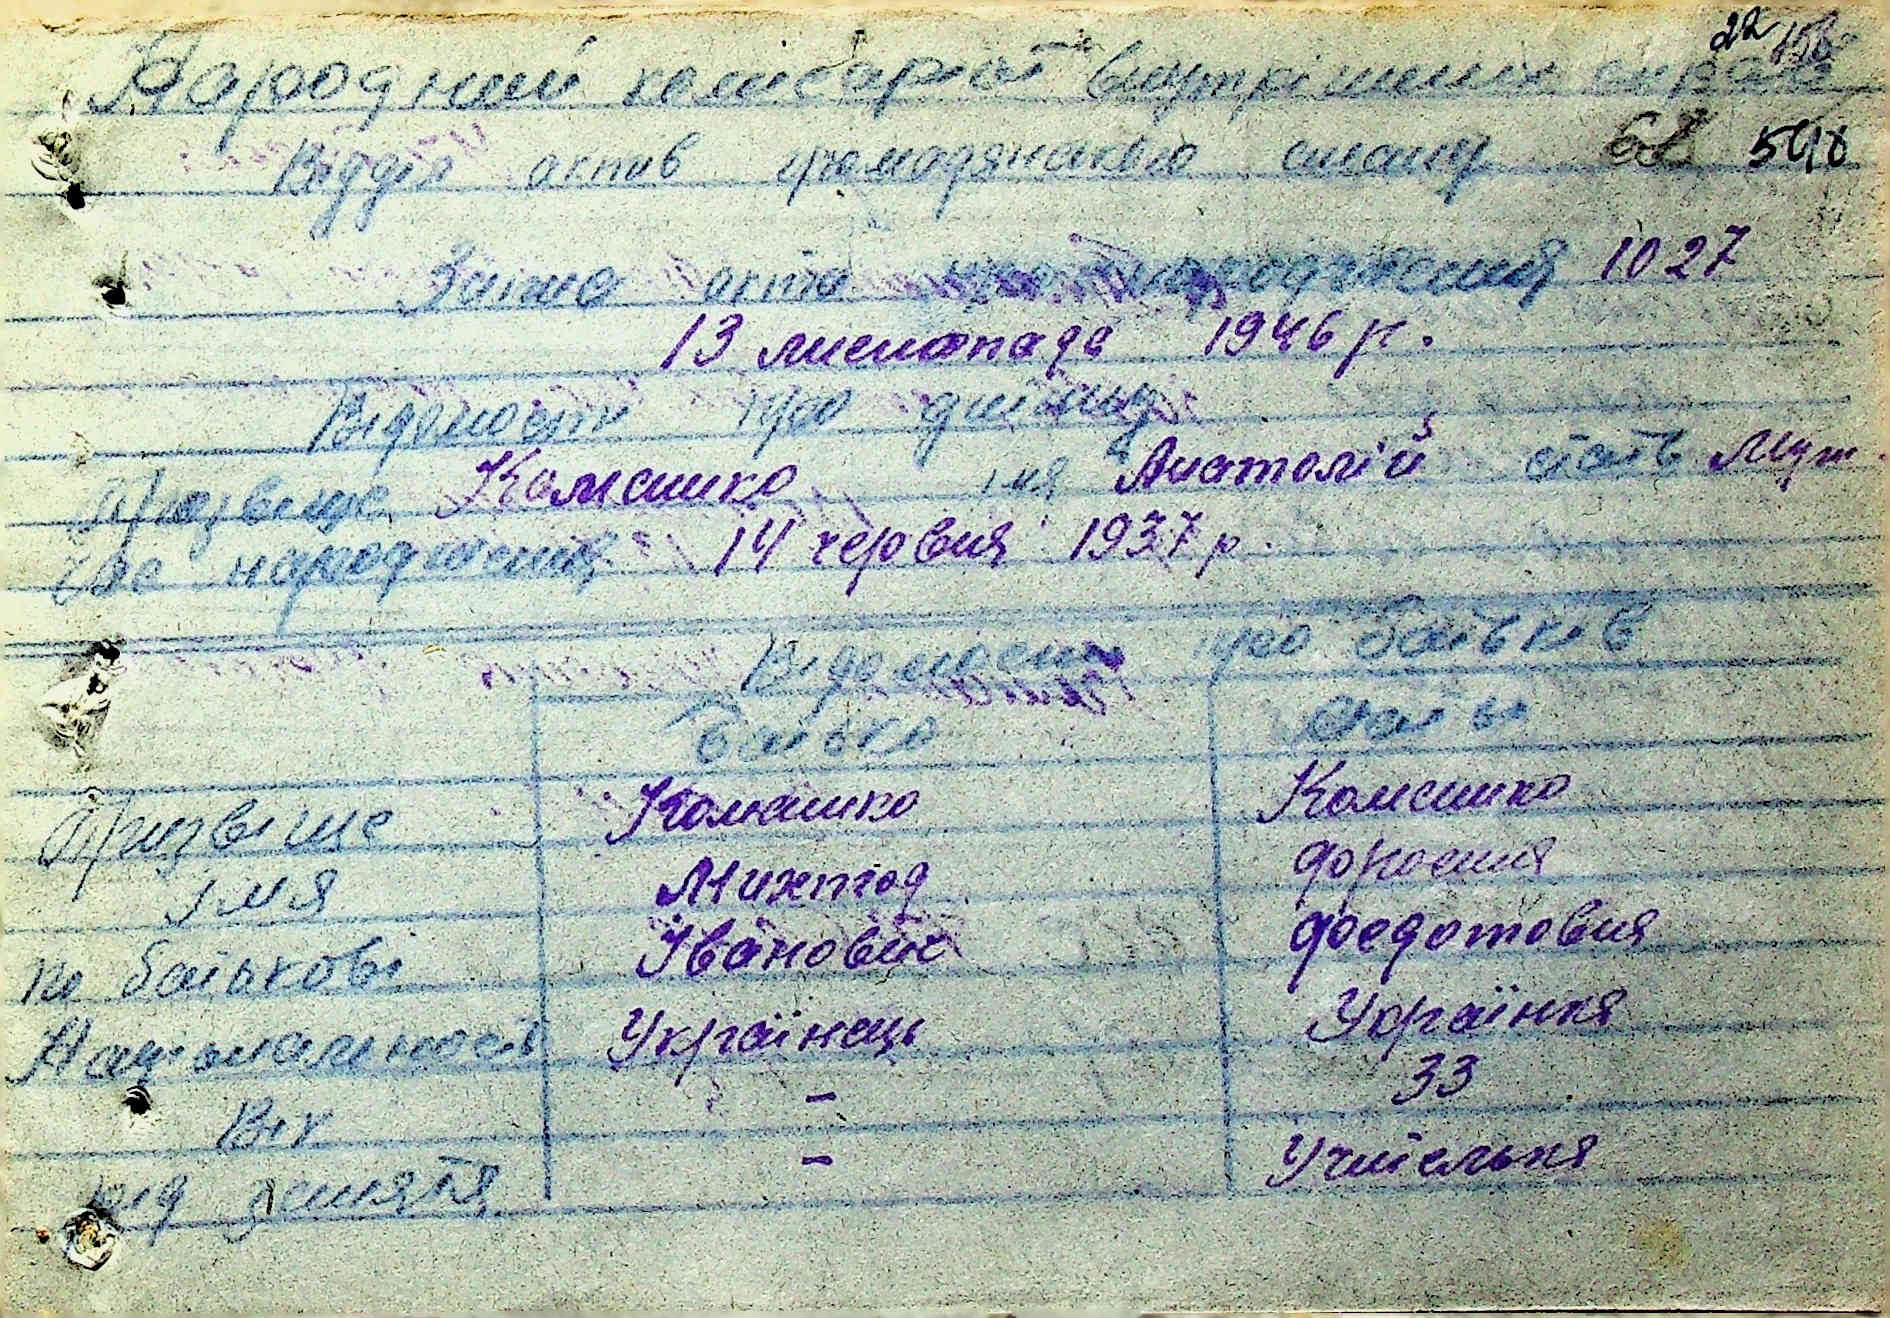 22
Народний комісаріат внутрішніх справ
Відділ актів громадянского стану 68 548
Запис акта про народження 1027
13 листопада 1946 р.
Відомости про дитину
Прізвище Комашко імя Анатолій стать Муж.
Час народження 14 червня 1937 р.
Відомости про батьків
Батько Мати
Прізвище Комашко Комашко
імя Михтод
по батькові Іванович Федотовня
Національність Українець Українка
Вік - 33
рід заняття - Учителька